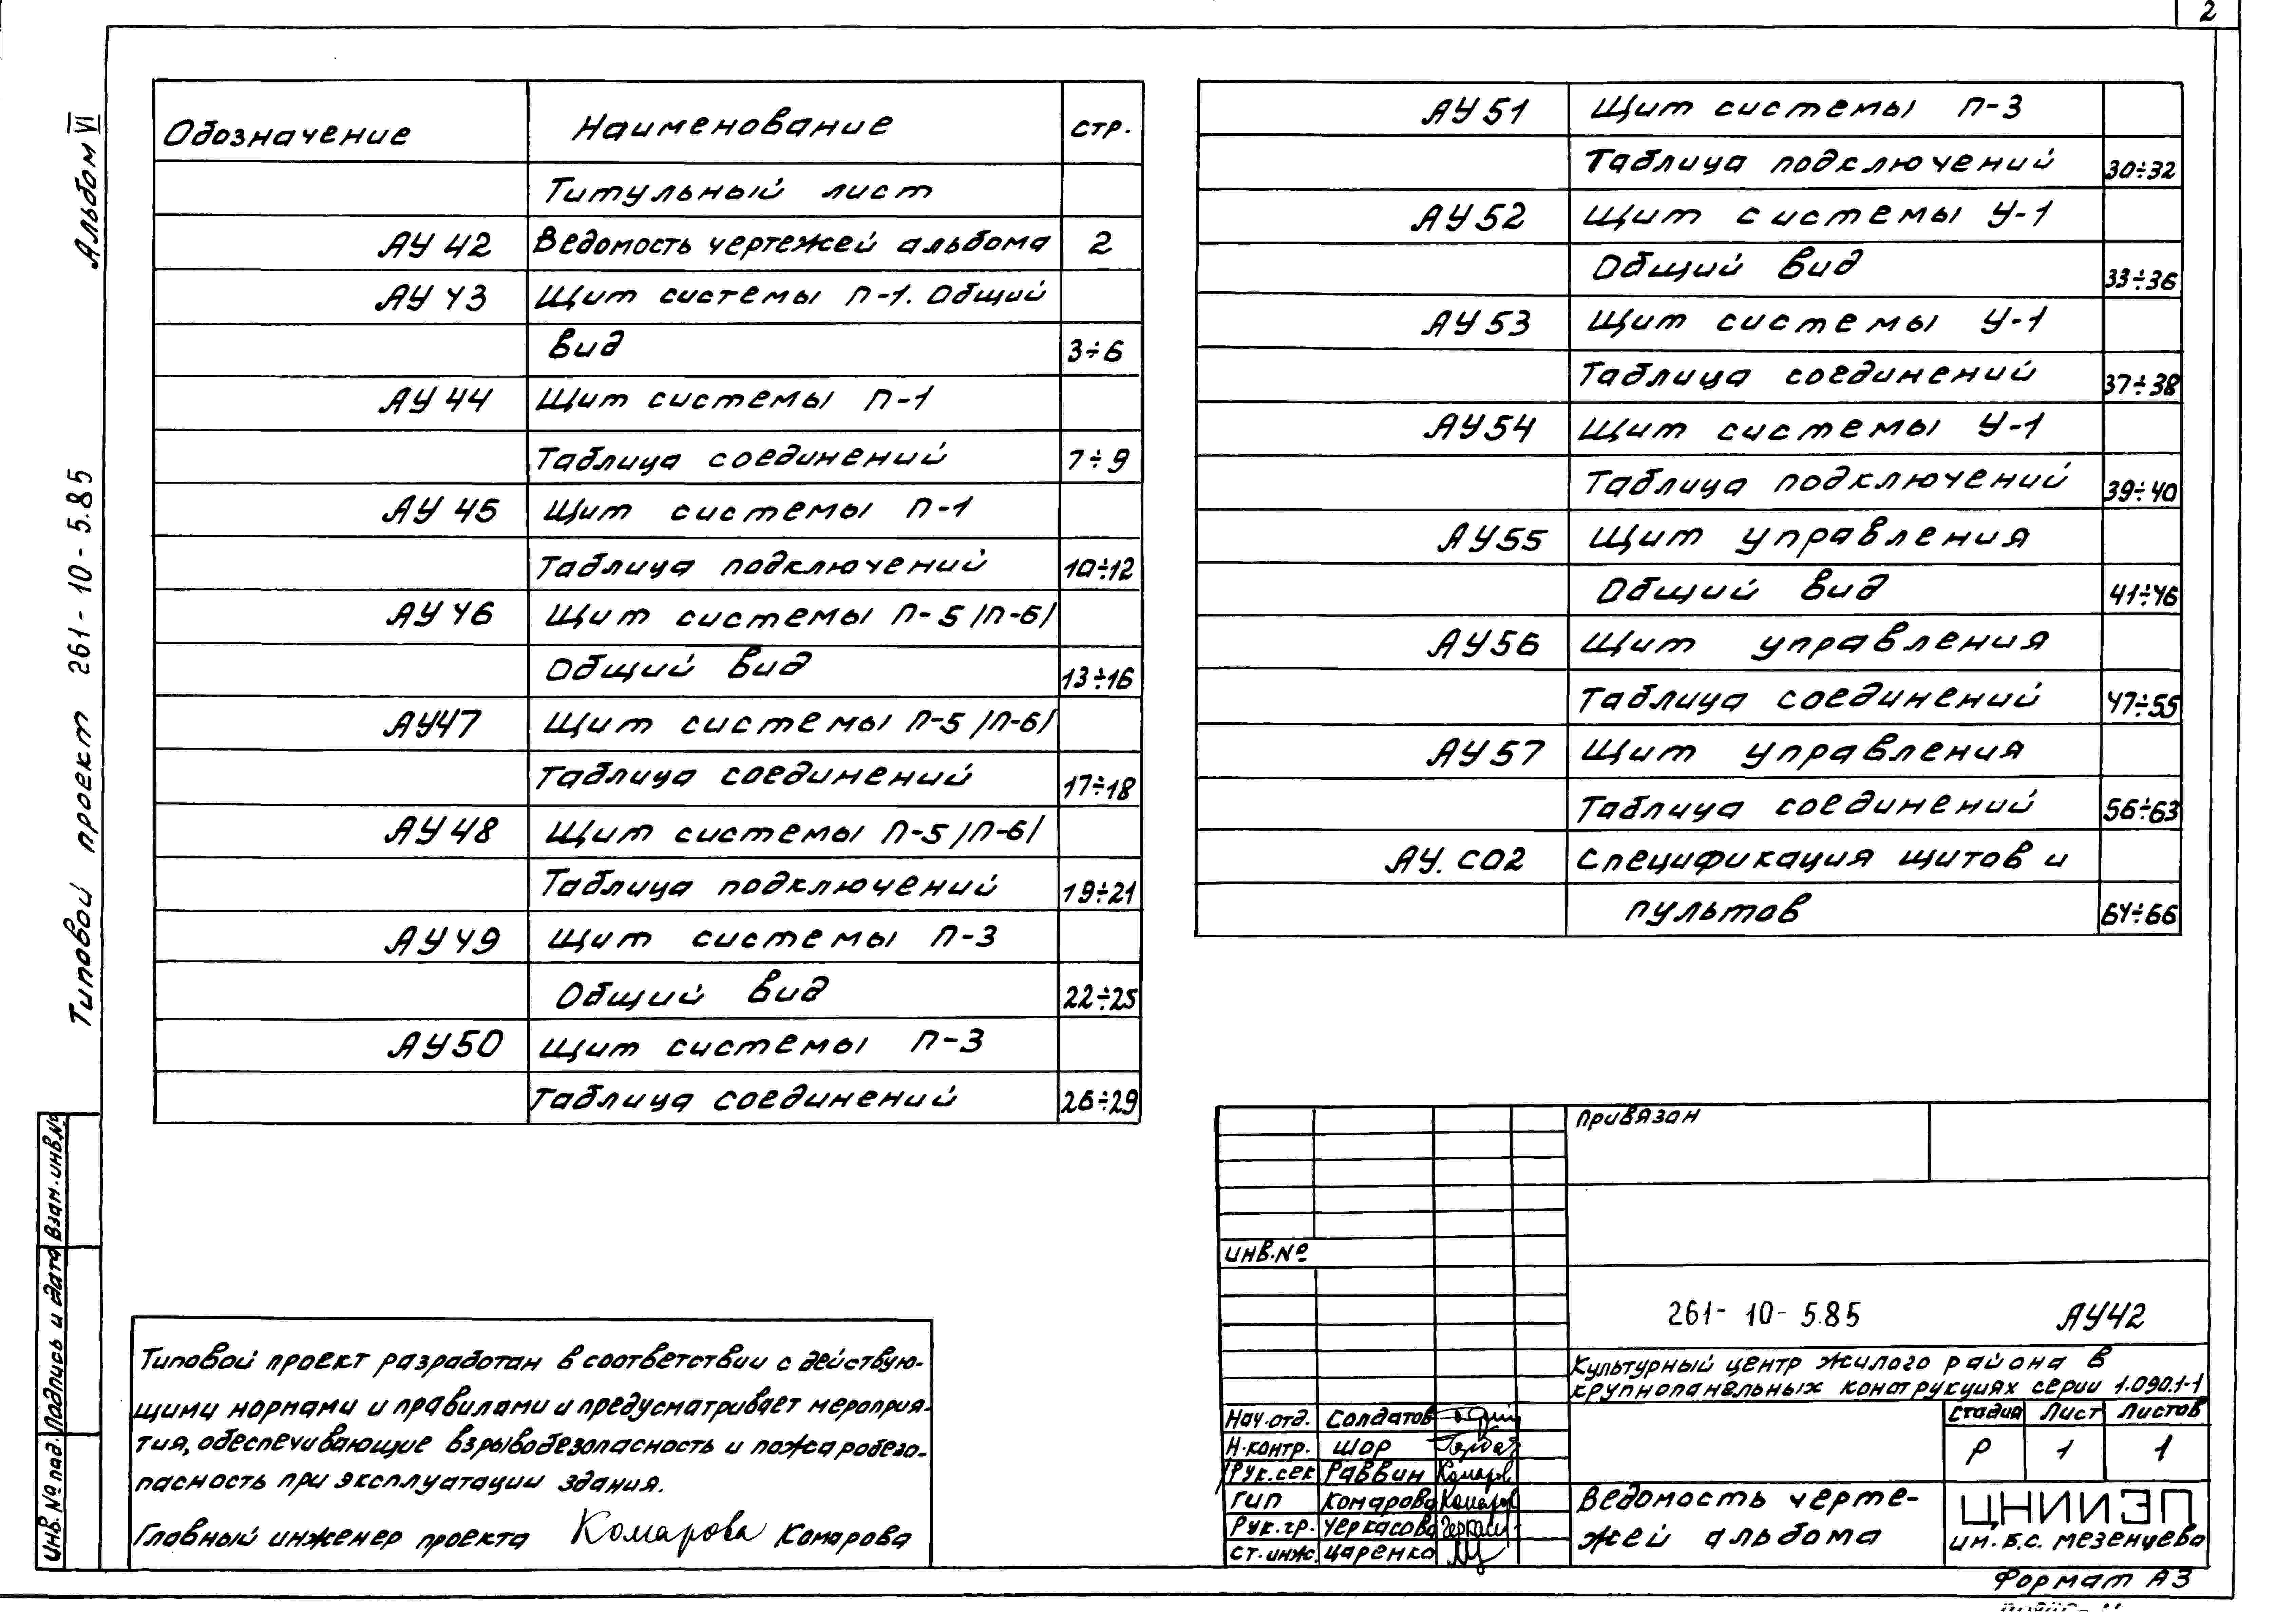 2
Альбом VI
Типовой проект 261-10-5.85
Обозначение Наименование стр.
Титульный лист
АУ 42 Ведомость чертежей альбома 2
АУ 43 Щит системы П-1. Общий
вид 3÷6
АУ 44 Щит системы П-1
Таблица соединений 7÷9
АУ 45 Щит системы П-1
Таблица подключений 10÷12
АУ 46 Щит системы П-5 /П-6/
Общий вид 13÷16
АУ47 Щит системы П-5 /П-6/
Таблица соединений 17÷18
АУ 48 Щит системы П-5 /П-6/
Таблица подключений 19÷21
АУ 49 Щит системы П-3
Общий вид 22÷25
АУ50 Щит системы П-3
Таблица соединений 26÷29
АУ 51 Щит системы П-3
Таблица подключений 30÷32
АУ 52 Щит системы У-1
Общий вид 33÷36
АУ 53 Щит системы У-1
Таблица соединений 37÷38
АУ54 Щит системы У-1
Таблица подключений 39÷40
АУ55 Щит управления
Общий вид 41÷46
АУ56 Щит управления
Таблица соединений 47÷55
АУ57 Щит управления
Таблица соединений 56÷63
АУ. СО2 Спецификация щитов и
пультов 64÷66
Типовой проект разработан в соответствии с действую-
щими нормами и правилами и предусматривает мероприя-
тия, обеспечивающие взрывобезопасность и пожаробезо-
пасность при эксплуатации здания.
Главный инженер проекта Комарова Комарова
Инв. № под. Подпись и дата Взам. инв. №
Привязан
инв. №
261-10-5.85 АУ42
Культурный центр жилого района в
крупнопанельных конструкциях серии 1.090.1-1
Нач. отд. Солдатов
Н. контр. Шор
Рук. сек Раввин Комаров
ГИП Комарова Комаров
Рук. гр. Черкасова Черкас
Ст. инж. Царенко
Стадия Лист Листов
Р 1 1
Ведомость черте-
жей альбома
ЦНИИЭП
им. Б.С. Мезенцева
Формат А3